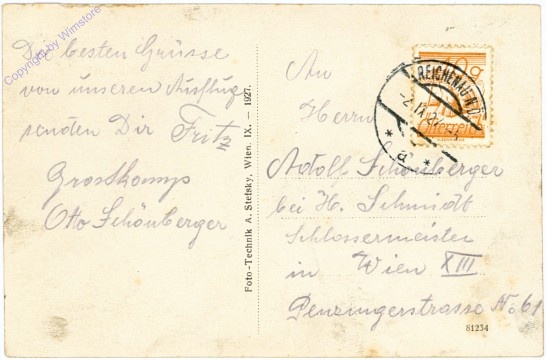 Copyright by Wimstore
Die besten Grüsse
von unseren Ausflug
senden Dir Fritz
Grosskamp
Otto Schönberger
Foto-Technik A. Stefsky, Wien. IX. — 1927.
An
Herrn
Adolf Schönberger
bei H. Schmidt
Schlossermeister
in Wien XIII
Penzingerstrasse No 61
81234
10g
REICHENAU N.Ö.